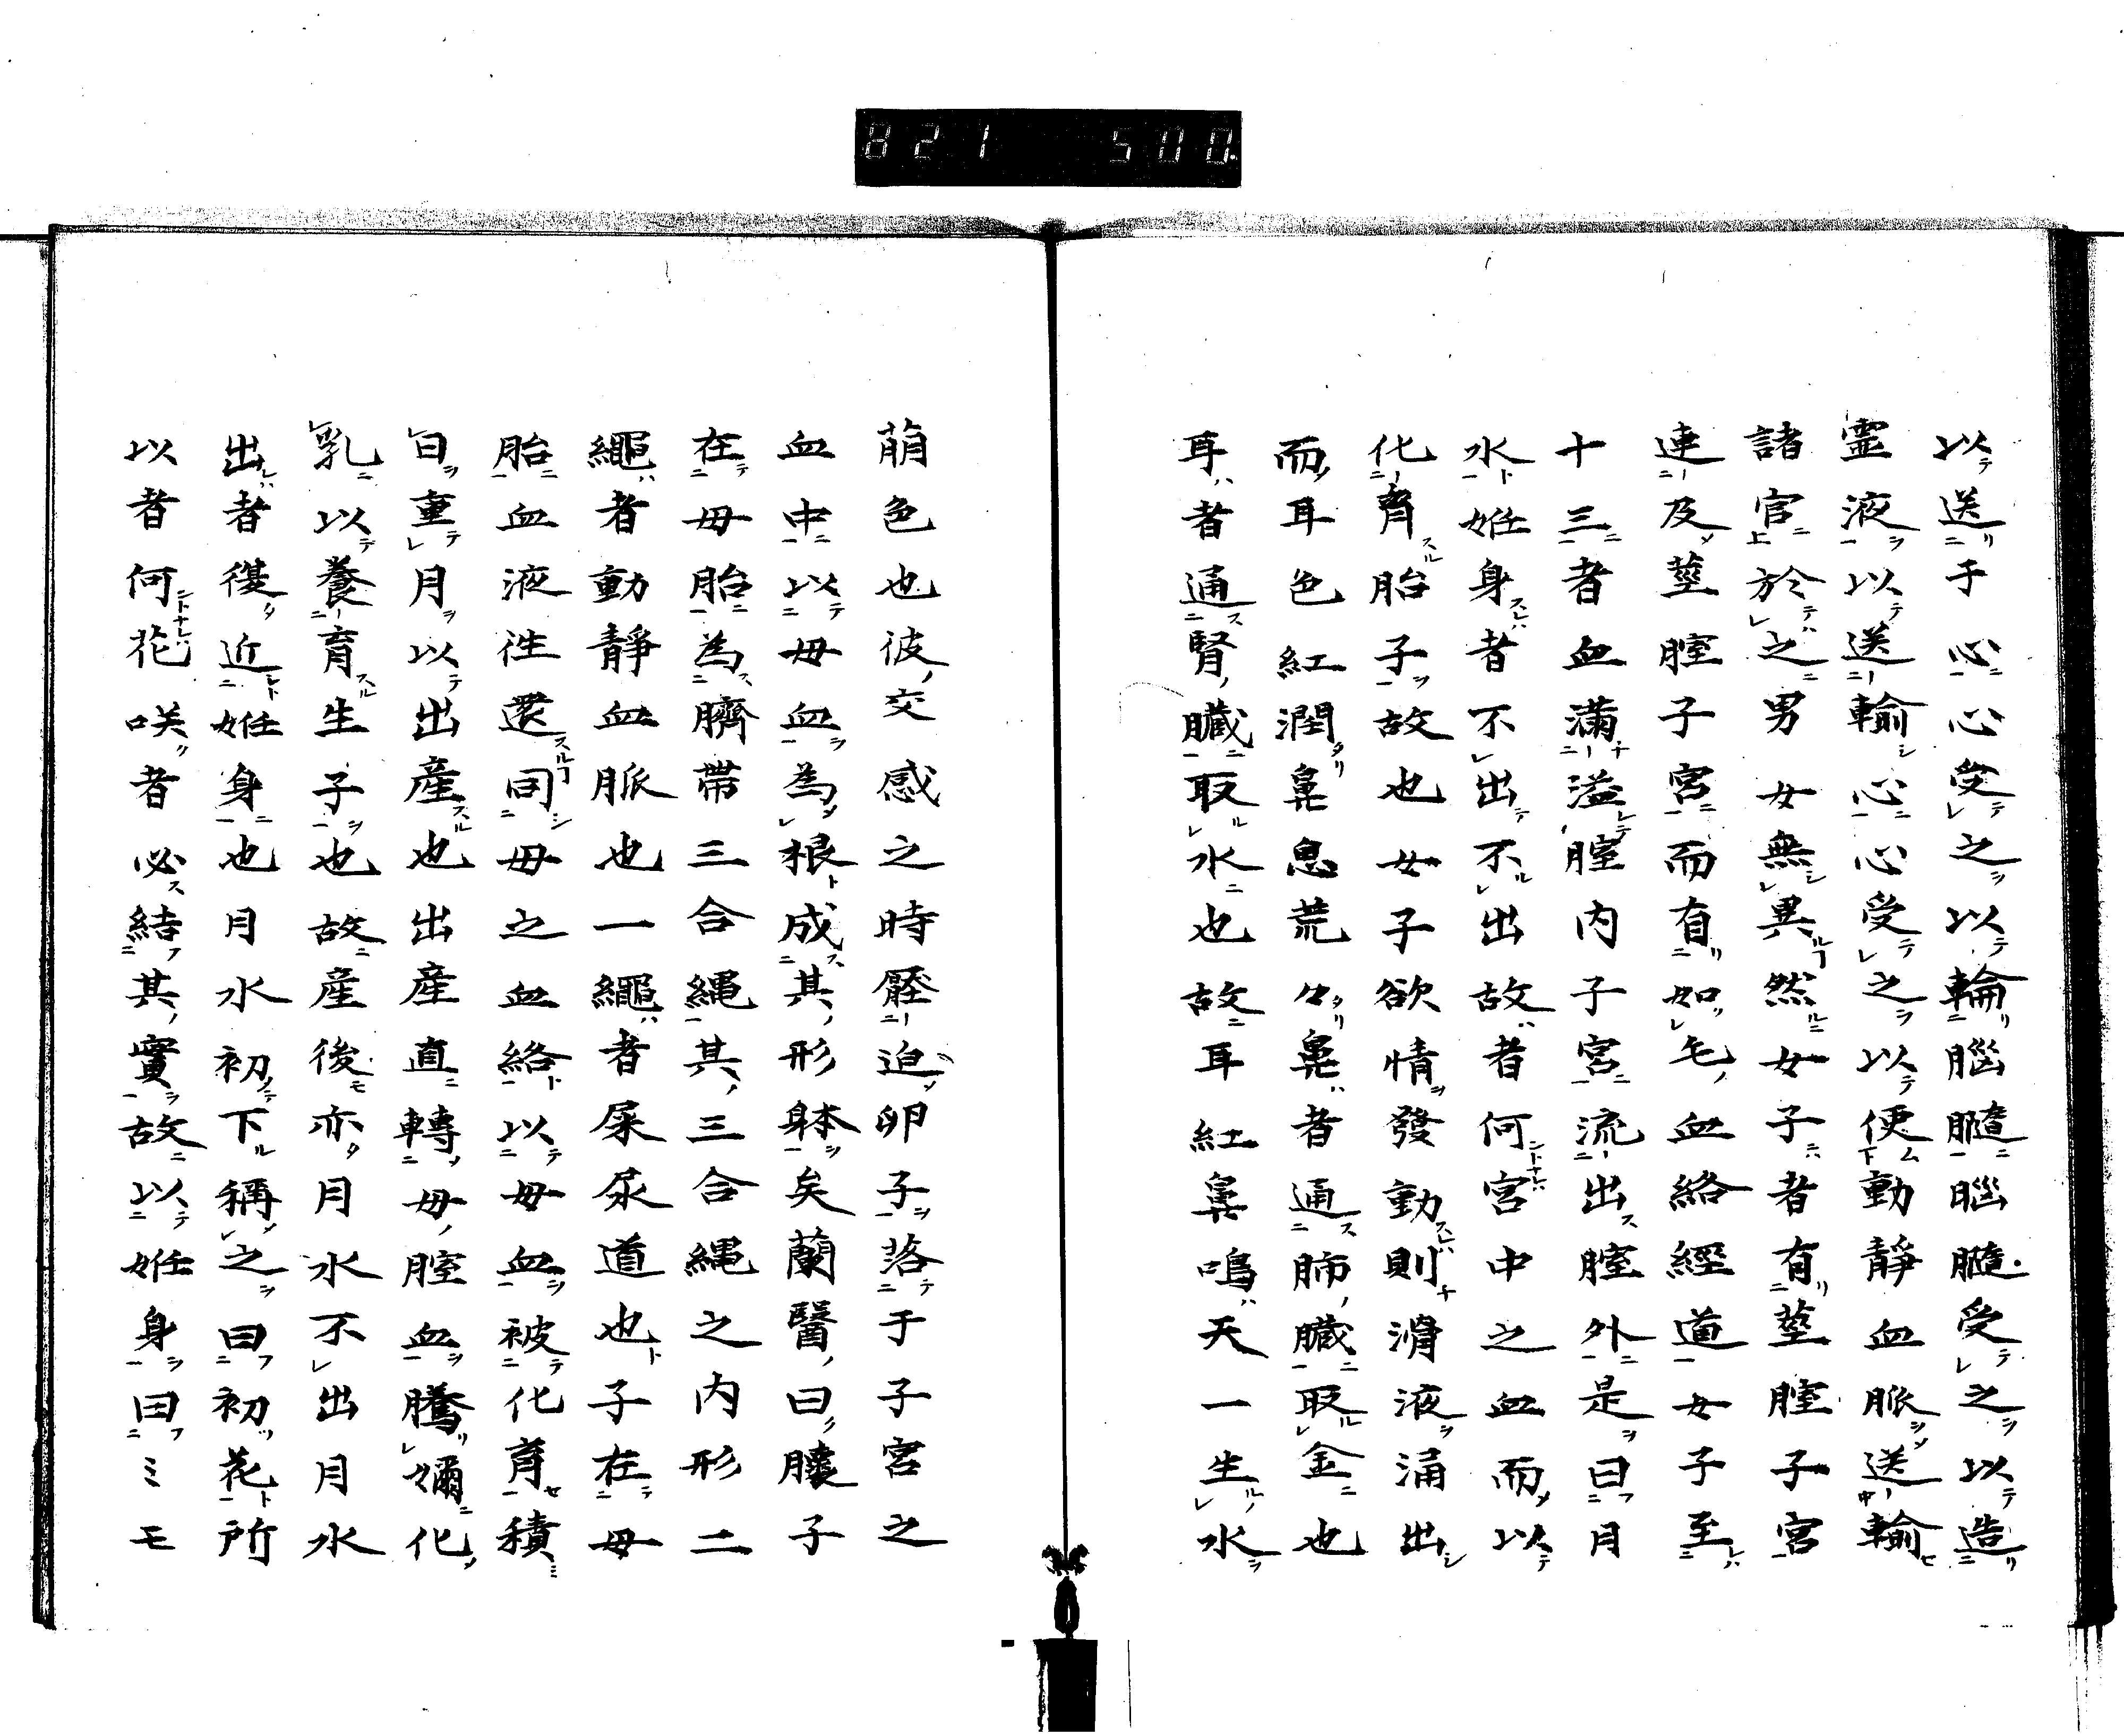 821 500
以送于心心受之以輪腦髓腦髓受之以造
霊液以送輸心心受之以便動靜血脈送輸
諸官於之男女無異然女子者有莖膣子宮
連及莖膣子宮而有如毛血絡經道女子至
十三者血滿溢膣内子宮流出膣外是曰月
水姙身者不出不出故者何宮中之血而以
化育胎子故也女子欲情發動則滑液涌出
而耳色紅潤鼻息荒々鼻者通肺臓取金也
耳者通腎臓取水也故耳紅鼻鳴天一生水
萠色也彼交感之時壓迫卵子落于子宮之
血中以母血為根成其形躰矣蘭醫曰子
在母胎為臍帶三合縄其三合縄之内形二
繩者動靜血脈也一繩者屎尿道也子在母
胎血液往還同母之血絡以母血被化育積
日重月以出産也出産直轉母膣血騰彌化
乳以養育生子也故産後亦月水不出月水
出者復近姙身也月水初下稱之曰初花所
以者何花咲者必結其實故以姙身曰ミモ